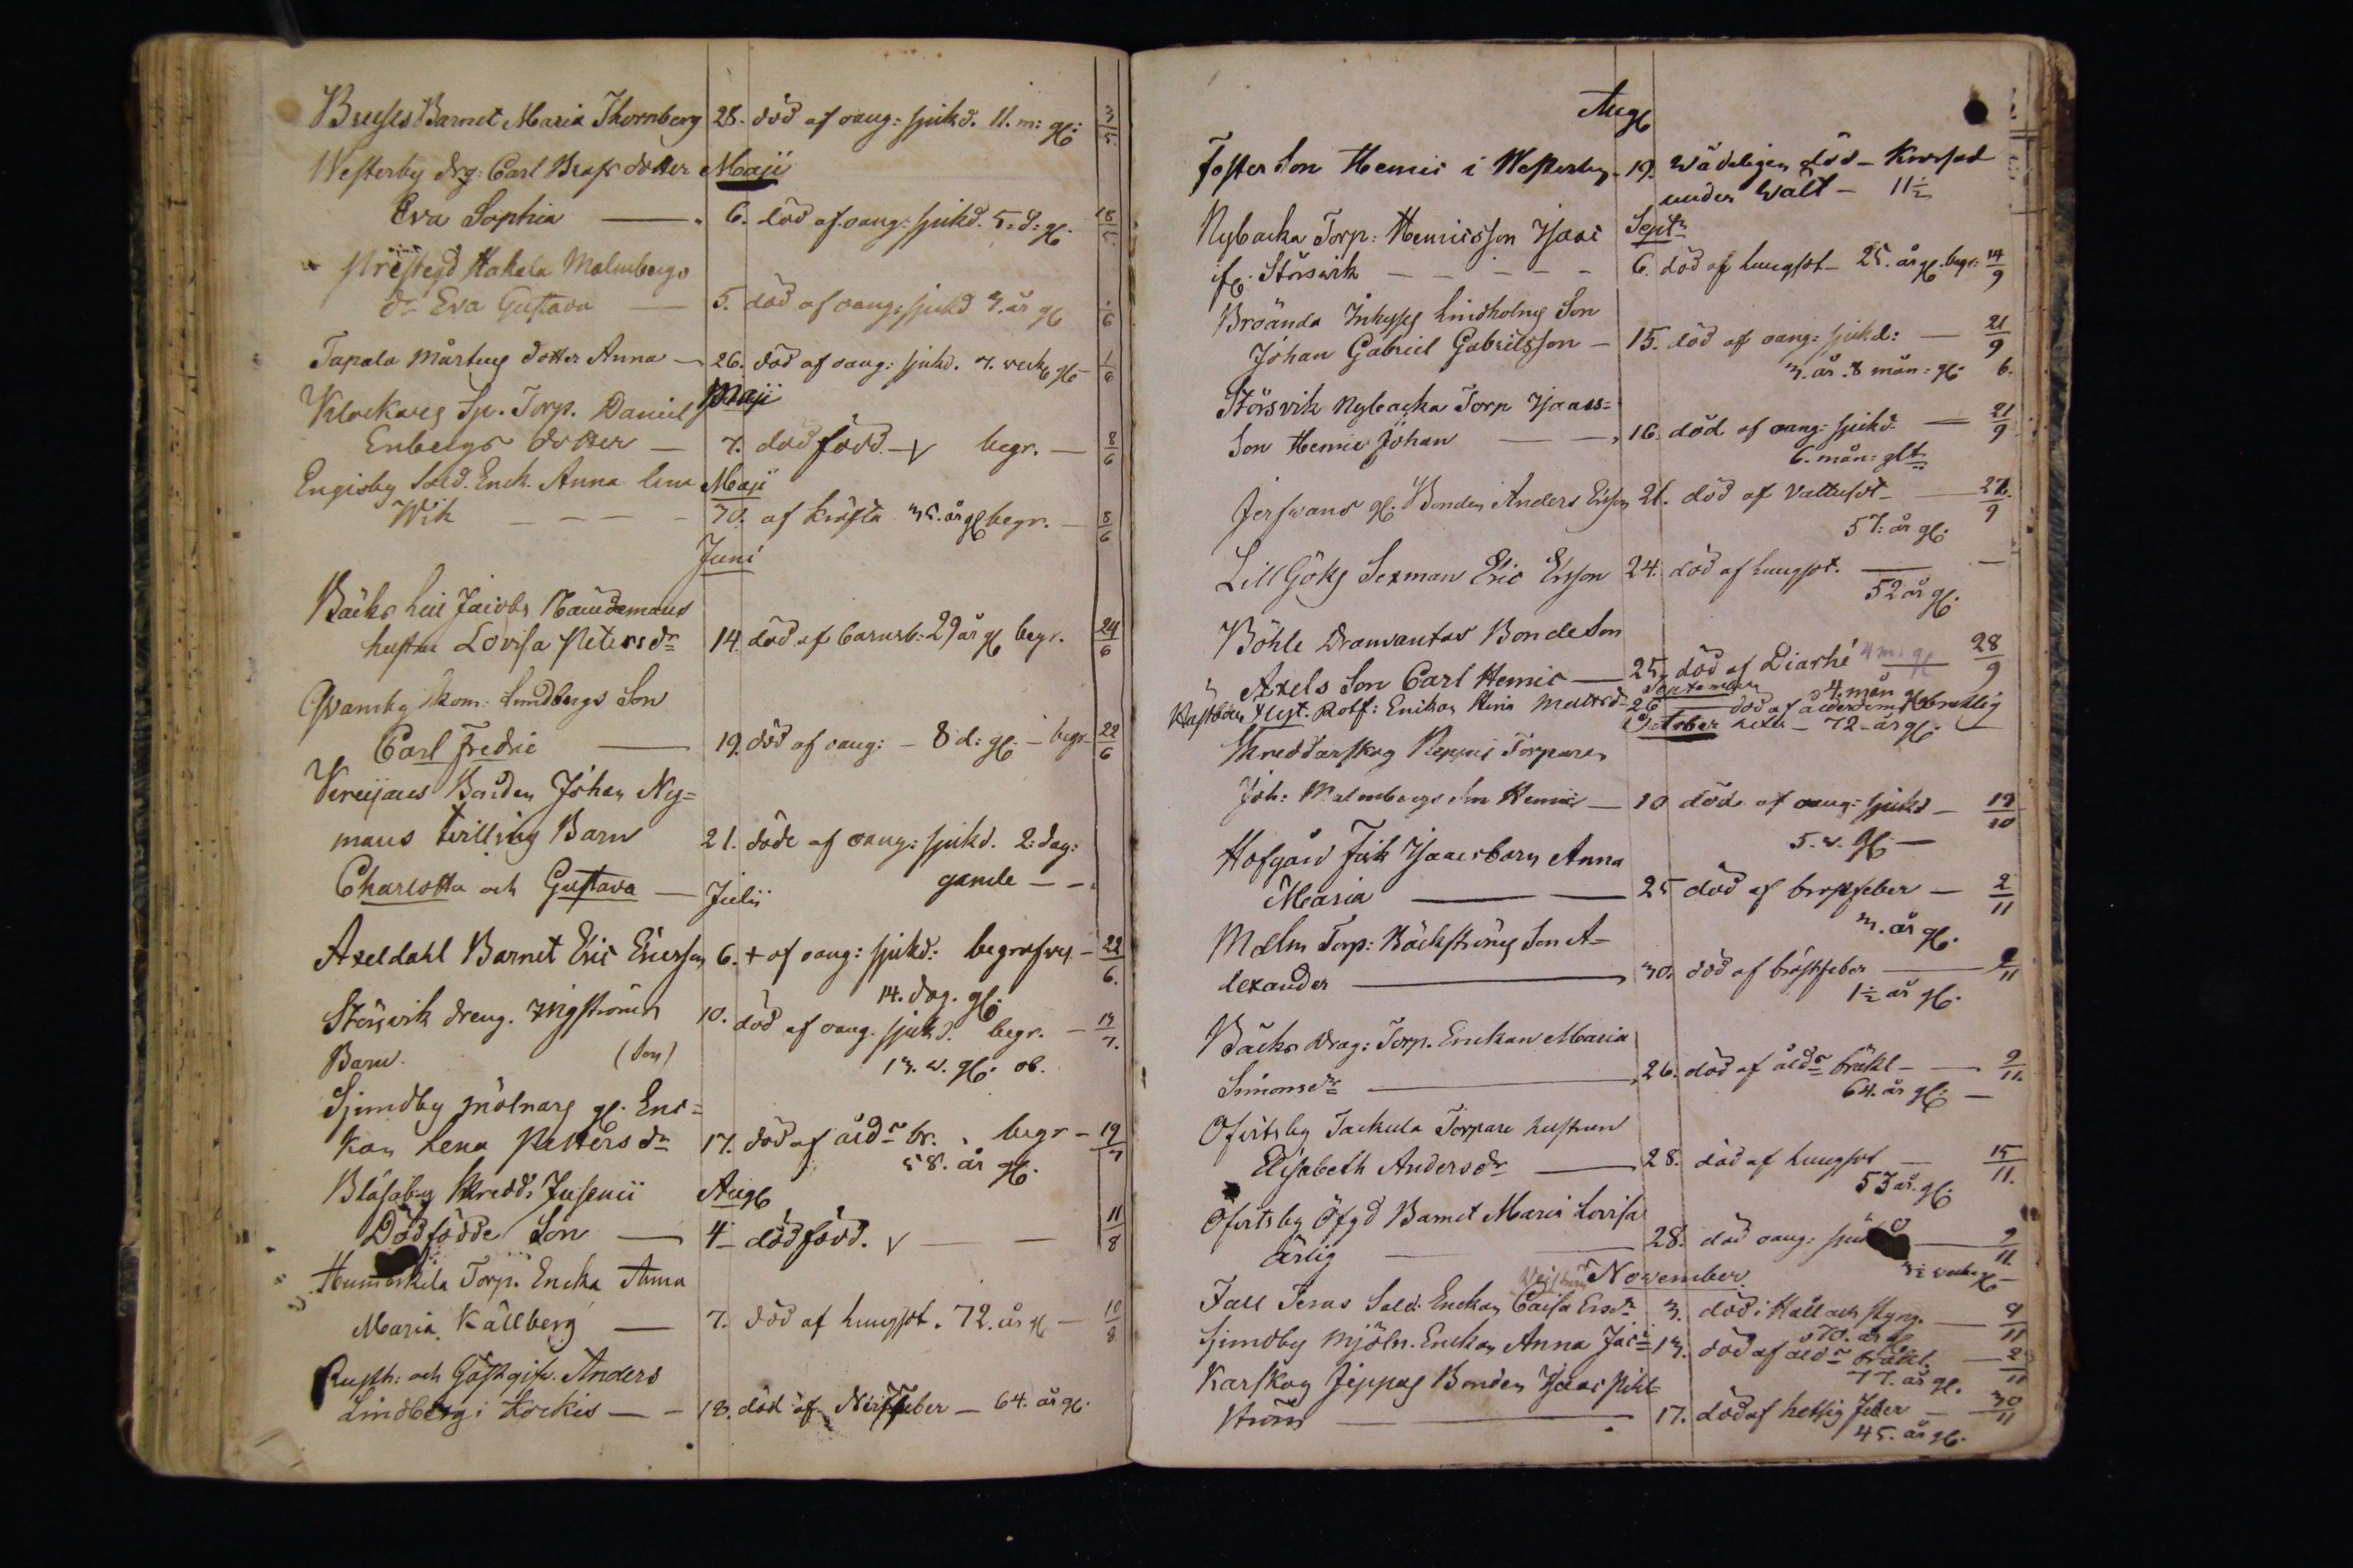 Barnet Maria Thornberg 28. död af oang: sjukd. 11. m: gl: 3/5
Westerby drg: Carl dotter Maji
Eva Sophia — 6. död af oang: sjukd. 5. d: gl. 18/5
Malmbergs
dr Eva Gustava — 5. död af oang: sjukd 3. år gl 1/6
Tapala Mårtens dotter Anna — 26. död af oang: sjukd. 7. veck gl — 1/6
Klockars Sp. Torp. Daniel Maji
Enbergs dotter — 7. dödfödd — begr. — 8/6
Engisby Sold. Enck. Anna Lena Maji
Wik — — — — 30. af kräfta 35. år gl begr. — 8/6
Juni
Bäcks Jacobs
hustru Lovisa Petersdr 14. död af barnsb: 29 år gl begr. 24/6
Lindbergs Son
Carl Fredric — 19. död af oang: — 8 d: gl. — begr. 22/6
Bonden Johan Ny=
mans tvilling Barn 21. döde af oang: sjukd. 2: dag:
Charlotta och Gustava — Julii gamle — —
Axeldahl Barnet Eric Ericsson 6. + af oang: sjukd: begrofves — 22/6.
Störsvik dreng. 10. död af oang. sjukd. begr. — 13/7.
14. dag. gl.
Barn. (Son) 13. v. gl. ob.
Sjundby Mölnars gl. Enc=
kan Lena Pettersdr 17. död af åldr br. begr — 19/7
58. år gl.
Blåsaby Skredd. Augs
Dödfödde Son — 4 — dödfödd. — — 11/8
Torp. Encka Anna
Maria Källberg — 7. död af lungsot. 72. år gl — 10/8
Rusth: och Gästgifv. Anders
Lindberg i — — 18. död af Nerffeber — 64. år gl.
Augs
Foster Son Henric i Westerby — 19. Wådeligen död — Krossad
under Wält — 11½
Nybacka Torp: Henricsson Isaac Septr
fr. Störsvik — — — — — 6. död af lungsot — 25. år gl. begr: 14/9
Broända Inhyses Lindholms Son
Johan Gabriel Gabrielsson — 15. död af oang: sjukd: — 21/9
3. år. 8 mån: gl. 6.
Störsvik Nybacka Torp Isaacs=
Son Henric Johan — — 16. död af oang: sjukd. — 21/9
6. mån: glt
gl. Bonden Anders Ersson 21. död af Vattusot — 27/9
57: år gl.
Lill Göks Sexman Eric Ersson 24. död af lungsot. — —
52 år gl.
Böhle Bonde Son
Axels Son Carl Henric — 25. död af Diarhé 4 m: gl — 28/9
September 4. mån gl
Enkan Stina Mattsdr 26 — död af ålderdoms bräcklig
October het — 72 — år gl.
Skreddarskog Torpare
Joh: Malmbergs Son Henric — 10 död af oang: sjukd — 19/10
5. v. gl —
Hofgård Isaacs barn Anna
Maria — — 25 död af bröstfeber — 2/11
3. år gl.
Malm Torp: Bäckströms Son A=
lexander — 30. död af bröstfeber — 9/11
1½ år gl.
Bäcks Drag: Torp. Enckan Maria
Simonsdr — 26. död af åldr bräckl — — 9/11.
64. år gl. —
Ofvitsby Jackula Torpare hustrun
Elisabeth Andersdr — 28. död af lungsot — 15/11.
53 år gl.
Ofvitsby Öfgd Barnet Maria Lovisa
Ärlig — — 28. död oang: — 9/11
3½ veck. gl —
November
Fall Sold: Enckan Caisa Ersdr 3. död i Håll och styng. — 9/11
70. år gl.
Sjundby Mjöln. Enckan Anna 13. död af åldr bräckl. —
77. år gl.
Karskog Jeppas Bonden Isaac
ström — 17. död af hetsig feber — 30/11
45. år gl.